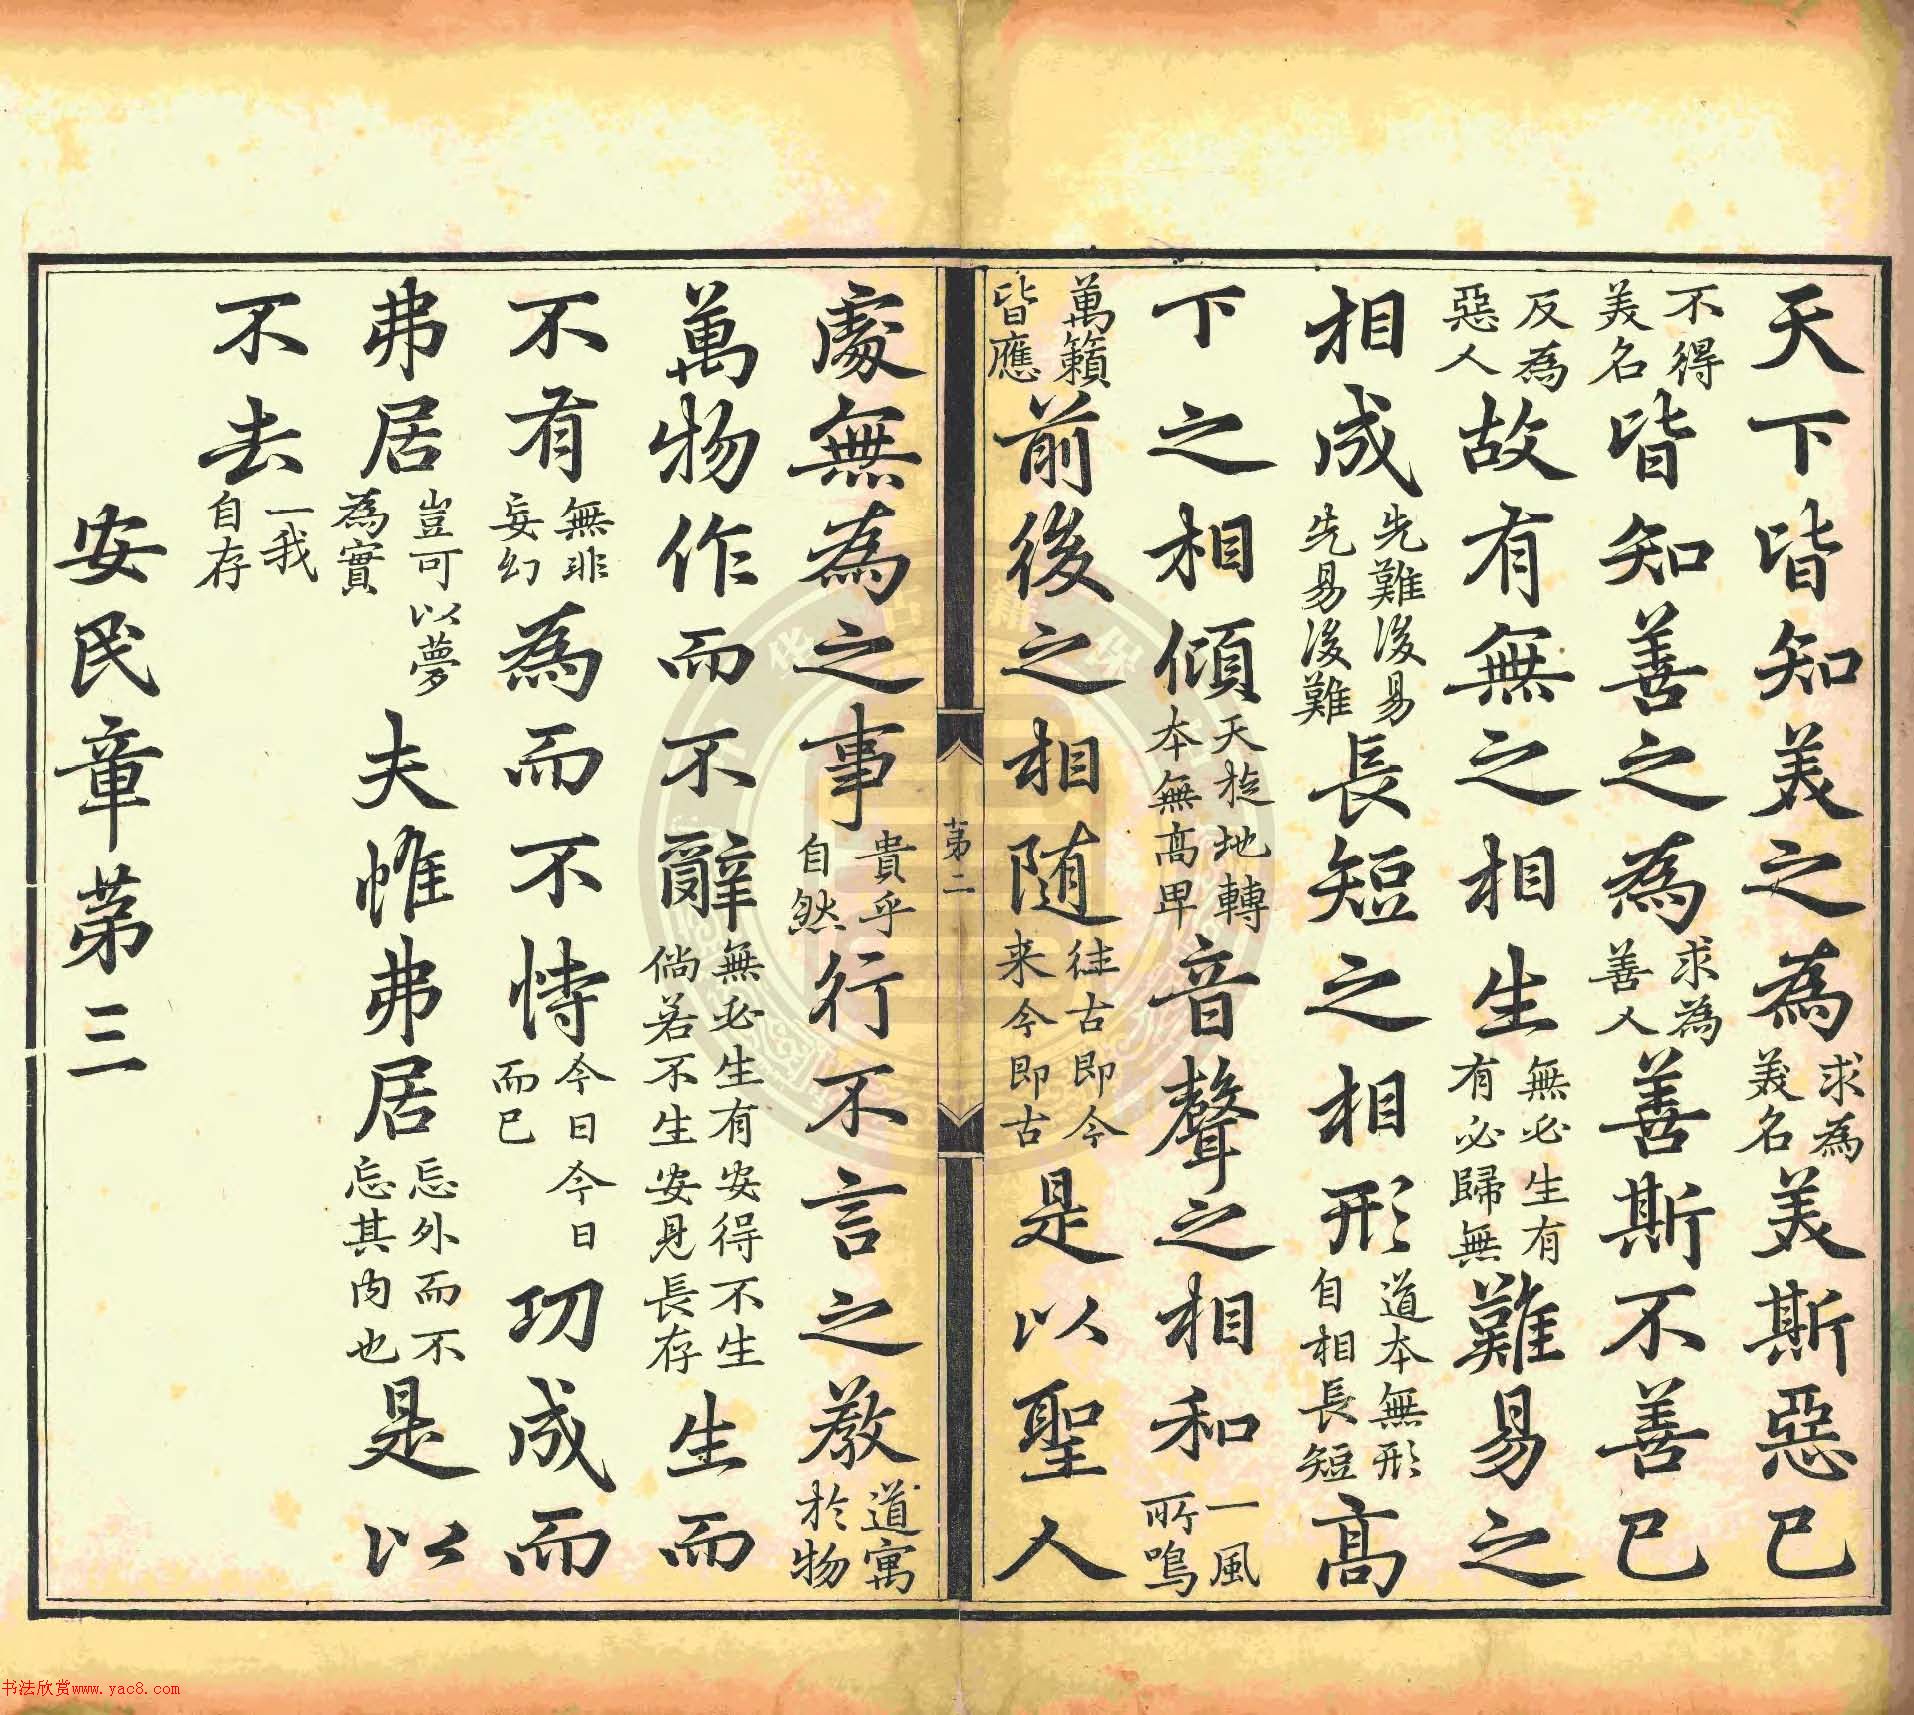 天下皆知美之為求為美名美斯惡已
不得美名皆知善之為求為善人善斯不善已
反為惡人故有無之相生無必生有有必歸無難易之
相成先難後易先易後難長短之相形道本無形自相長短高
下之相傾天旋地轉本無高卑音聲之相和一風所鳴
萬籟皆應前後之相隨往古即今来今即古是以聖人
第二
處無為之事貴乎自然行不言之教道寓於物
萬物作而不辭無必生有安得不生倘若不生安見長存生而
不有無非妄幻為而不恃今日今日而已功成而
弗居豈可以夢為實夫惟弗居忘外而不忘其内也是以
不去一我自存
安民章第三
书法欣赏www.yac8.com